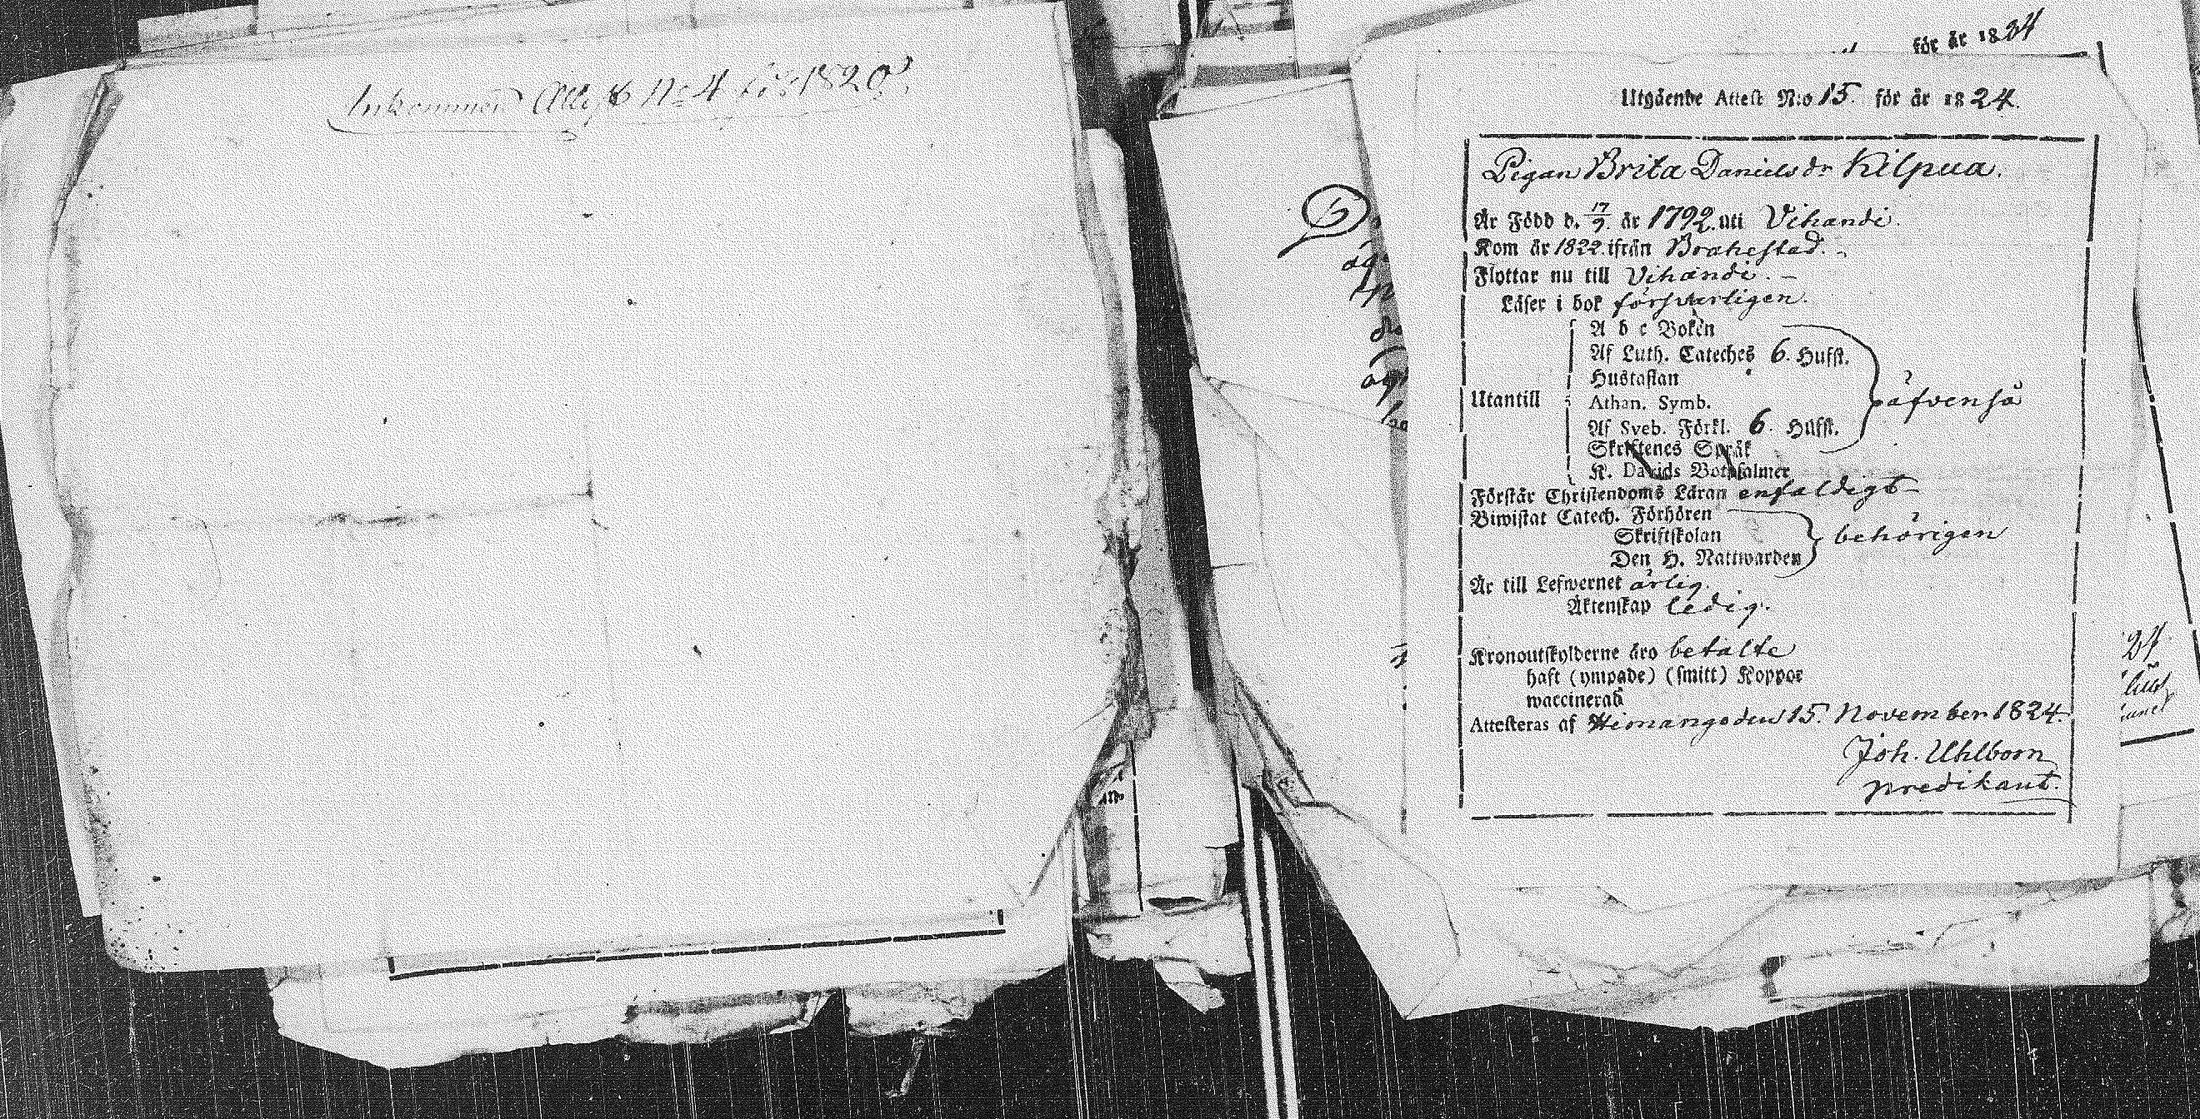 Inkommen Attest No 4 för 1820
för år 1824
Utgående Attest N:o 15. för år 1824.
Pigan Brita Danielsdr Kilpua.
Är Född d. 17/9 år 1792. uti Vihandi.
Kom år 1822. ifrån Brahestad.
Flyttar nu till Vihandi. –
Läser i bok försvarligen.
A b c Boken
Af Luth. Cateches 6. Hufst.
Hustaflan
Utantill
Athan. Symb.
äfvenså
Af Sveb. Förkl. 6. Hufst.
Skriftenes Språk
K. Davids Botpsalmer
Förstår Christendoms Läran enfaldigt –
Biwistat Catech. Förhören
Skriftskolan
behörigen
Den H. Nattwarden
Är till Lefwernet ärlig.
Äktenskap ledig.
Kronoutskylderne äro betalte
haft (ympade) (smitt) Koppor
waccinerad
Attesteras af Himango den 15. November 1824.
Joh. Uhlbom
predikant.
24